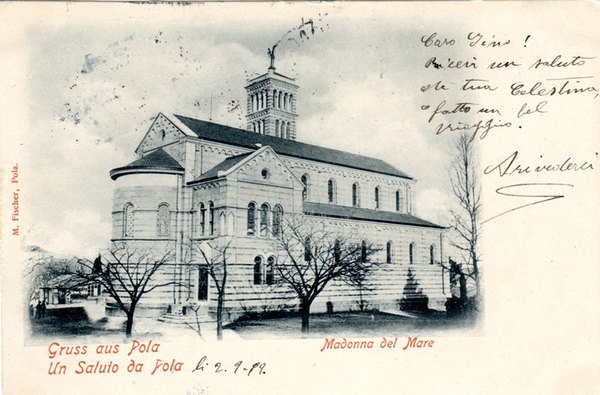 Caro Gino!
Ricevi un saluto
da tua Celestina,
o fatto un bel
viaggio.
Arivederci
M. Fischer, Pola.
Gruss aus Pola
Madonna del Mare
Un Saluto da Pola li 2.9-99.